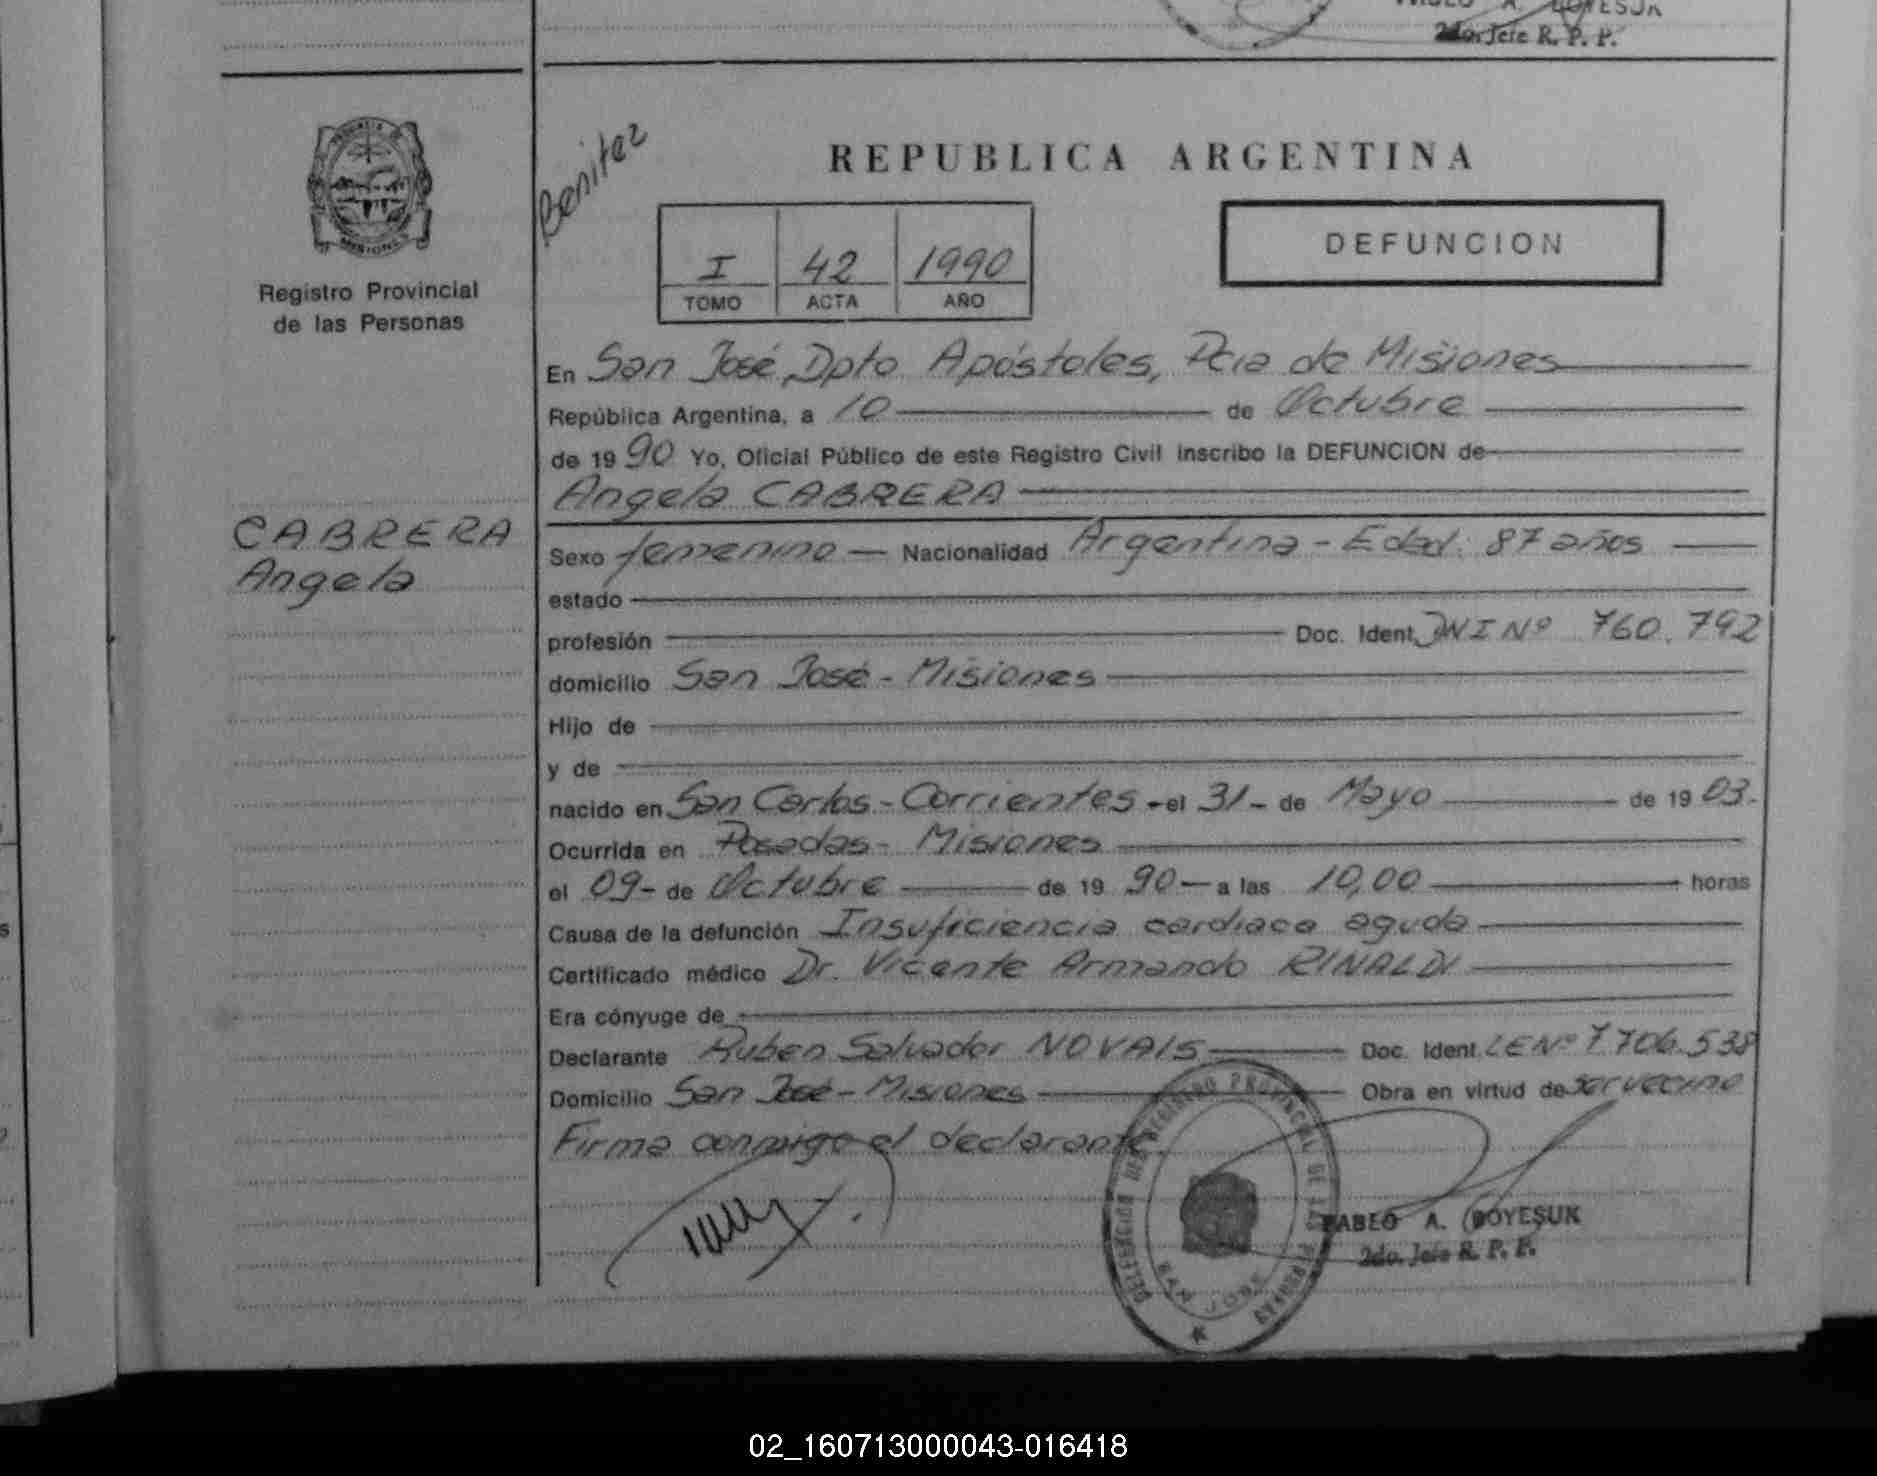 2do. Jefe R. P. P.
PROVINCIA DE
MISIONES
Registro Provincial
de las Personas
Benitez
REPUBLICA ARGENTINA
I 42 1990
TOMO ACTA AÑO
DEFUNCION
En San José, Dpto Apóstoles, Pcia de Misiones
República Argentina, a 10 de Octubre
de 1990 Yo, Oficial Público de este Registro Civil inscribo la DEFUNCION de
Angela CABRERA
CABRERA
Angela
Sexo femenino Nacionalidad Argentina - Edad: 87 años
estado
profesión Doc. Ident. DNI Nº 760.792
domicilio San José - Misiones
Hijo de
y de
nacido en San Carlos - Corrientes - el 31 - de Mayo de 1903.
Ocurrida en Posadas - Misiones
el 09 - de Octubre de 1990 a las 10,00 horas
Causa de la defunción Insuficiencia cardiaca aguda
Certificado médico Dr. Vicente Armando RINALDI
Era cónyuge de
Declarante Ruben Salvador NOVAIS Doc. Ident. LE Nº 7.706.538
Domicilio San José - Misiones Obra en virtud de ser vecino
Firma conmigo el declarante.
DELEGACION DEL REGISTRO PROVINCIAL DE LAS PERSONAS
SAN JOSE
PABLO A. BOYESUK
2do. Jefe R. P. P.
02_160713000043-016418